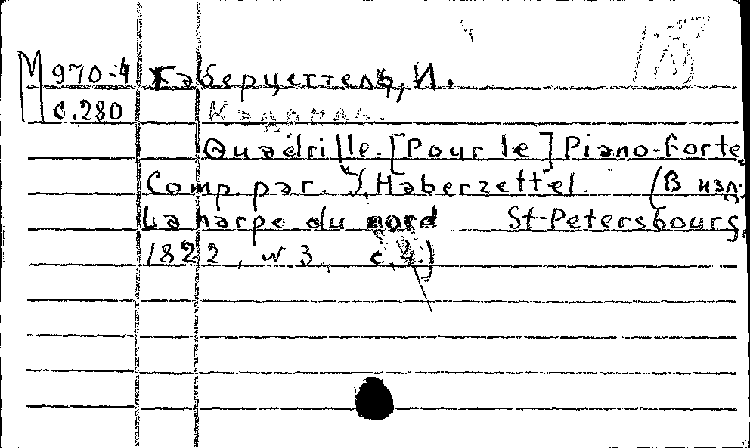 М 970-4 Габерцеттель, И.
с.280 Кадриль.
Quadrille. [Pour le] Piano-forte
Comp. par J. Haberzettel. (В изд:
La harpe du nord St-Petersbourg,
1822, № 3, с. 4.)